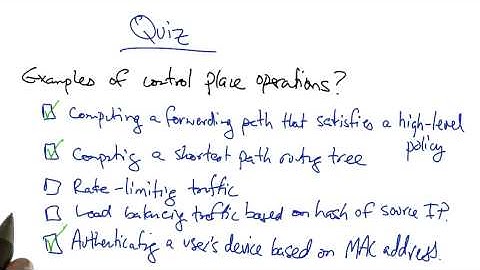 Quiz
Examples of control place operations?
Computing a forwarding path that satisfies a high-level
policy
Computing a shortest path routing tree
Rate-limiting traffic
Load balancing traffic based on hash of source IP.
Authenticating a user's device based on MAC address.